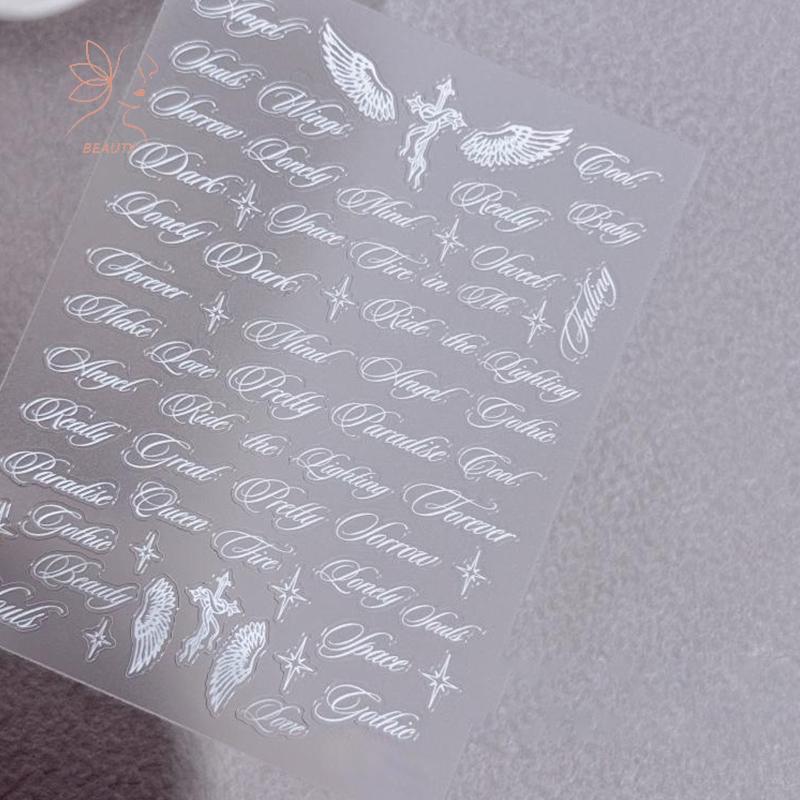 Angel
BEAUTY
Souls Wings Cool
Sorrow Lonely Mind Really Baby
Dark Space Fire in Me Sweet Falling
Lonely Dark Ride the Lighting
Forever Mind Angel Gothic
Make Love Pretty Paradise Cool
Angel Ride the Lighting Forever
Really Great Pretty Sorrow
Paradise Queen Fire Lonely Souls
Gothic Space
Beauty Gothic
Souls Love